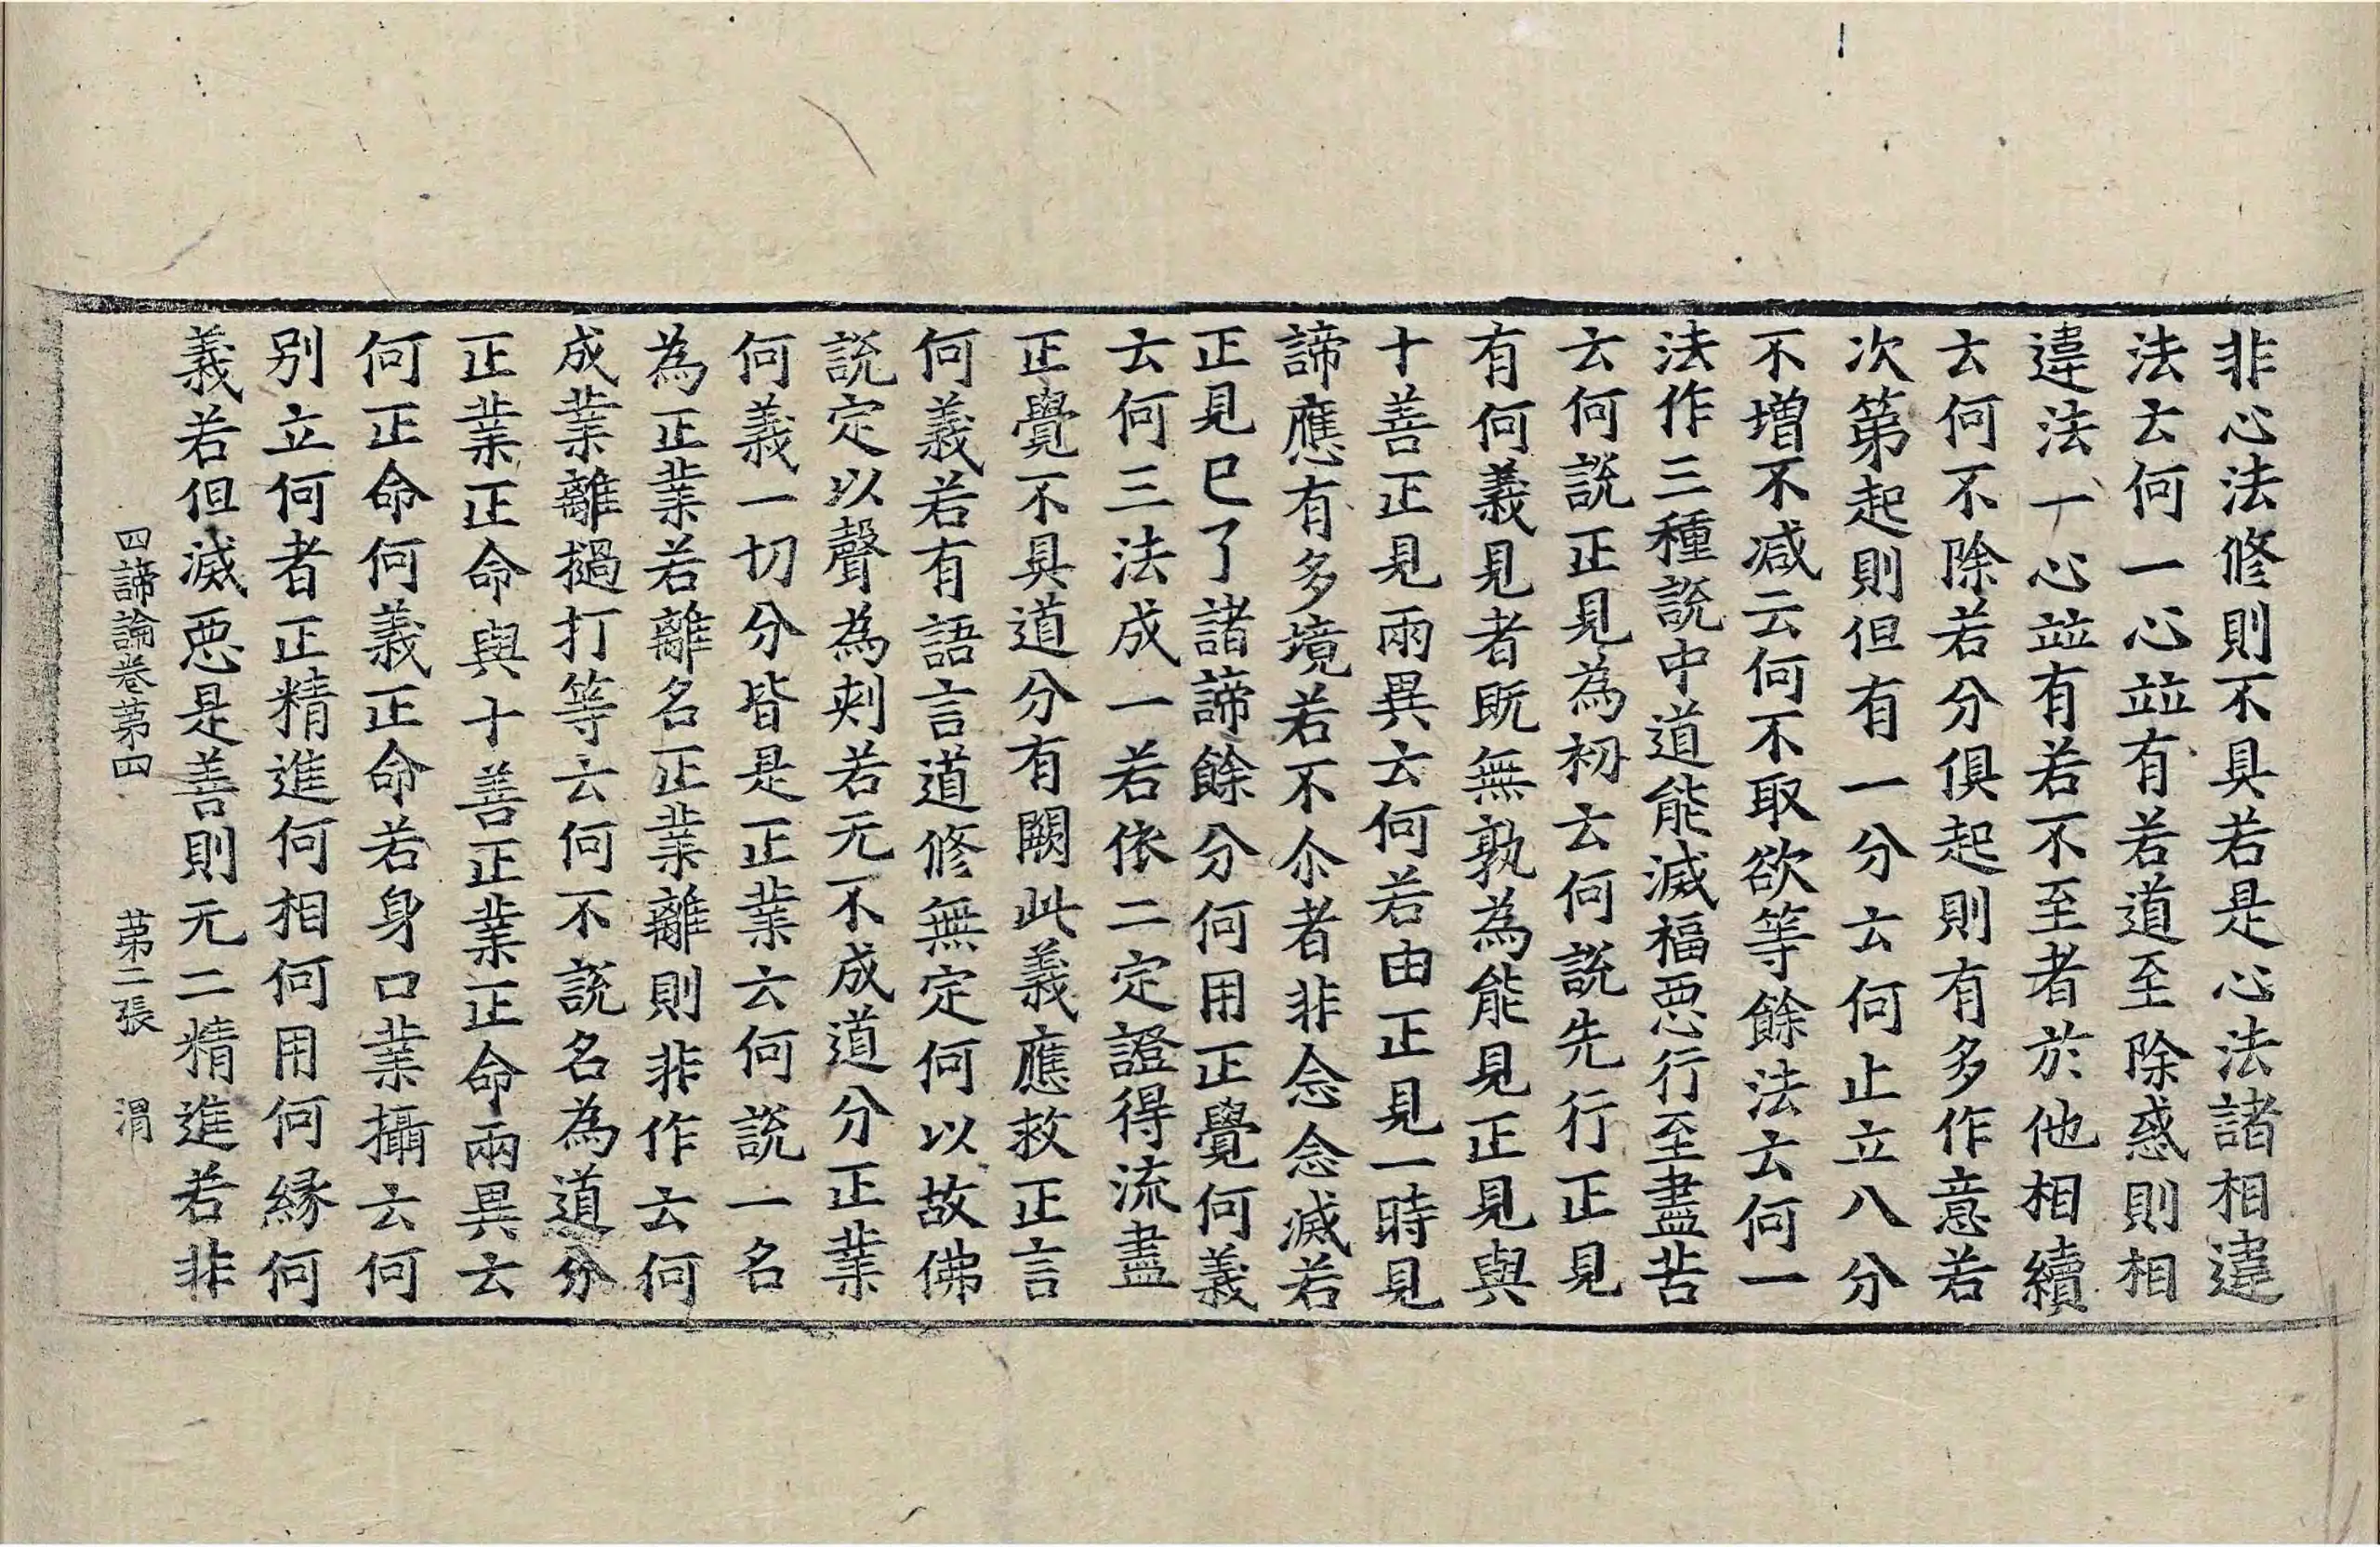 非心法修則不具若是心法諸相違
法云何一心並有若道至除惑則相
違法一心並有若不至者於他相續
云何不除若分俱起則有多作意若
次第起則但有一分云何止立八分
不增不減云何不取欲等餘法云何一
法作三種說中道能滅福惡行至盡苦
云何說正見為初云何說先行正見
有何義見者既無孰為能見正見與
十善正見兩異云何若由正見一時見
諦應有多境若不尒者非念念滅若
正見已了諸諦餘分何用正覺何義
云何三法成一若依二定證得流盡
正覺不具道分有闕此義應救正言
何義若有語言道修無定何以故佛
說定以聲為刺若元不成道分正業
何義一切分皆是正業云何說一名
為正業若離名正業離則非作云何
成業離撾打等云何不說名為道分
正業正命與十善正業正命兩異云
何正命何義正命若身口業攝云何
別立何者正精進何相何用何緣何
義若但滅惡是善則无二精進若非
四諦論卷第四　第二張　渭